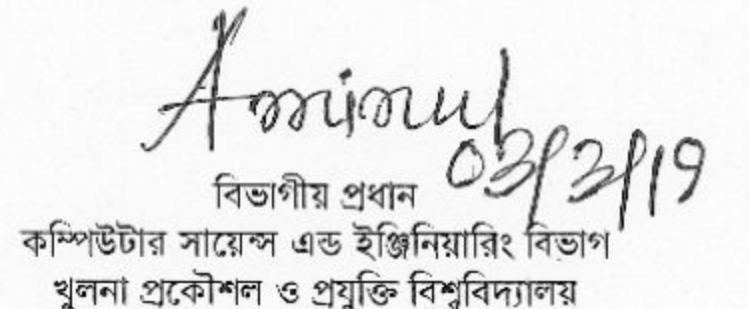 Aminul
03/3/19
বিভাগীয় প্রধান
কম্পিউটার সায়েন্স এন্ড ইঞ্জিনিয়ারিং বিভাগ
খুলনা প্রকৌশল ও প্রযুক্তি বিশ্ববিদ্যালয়